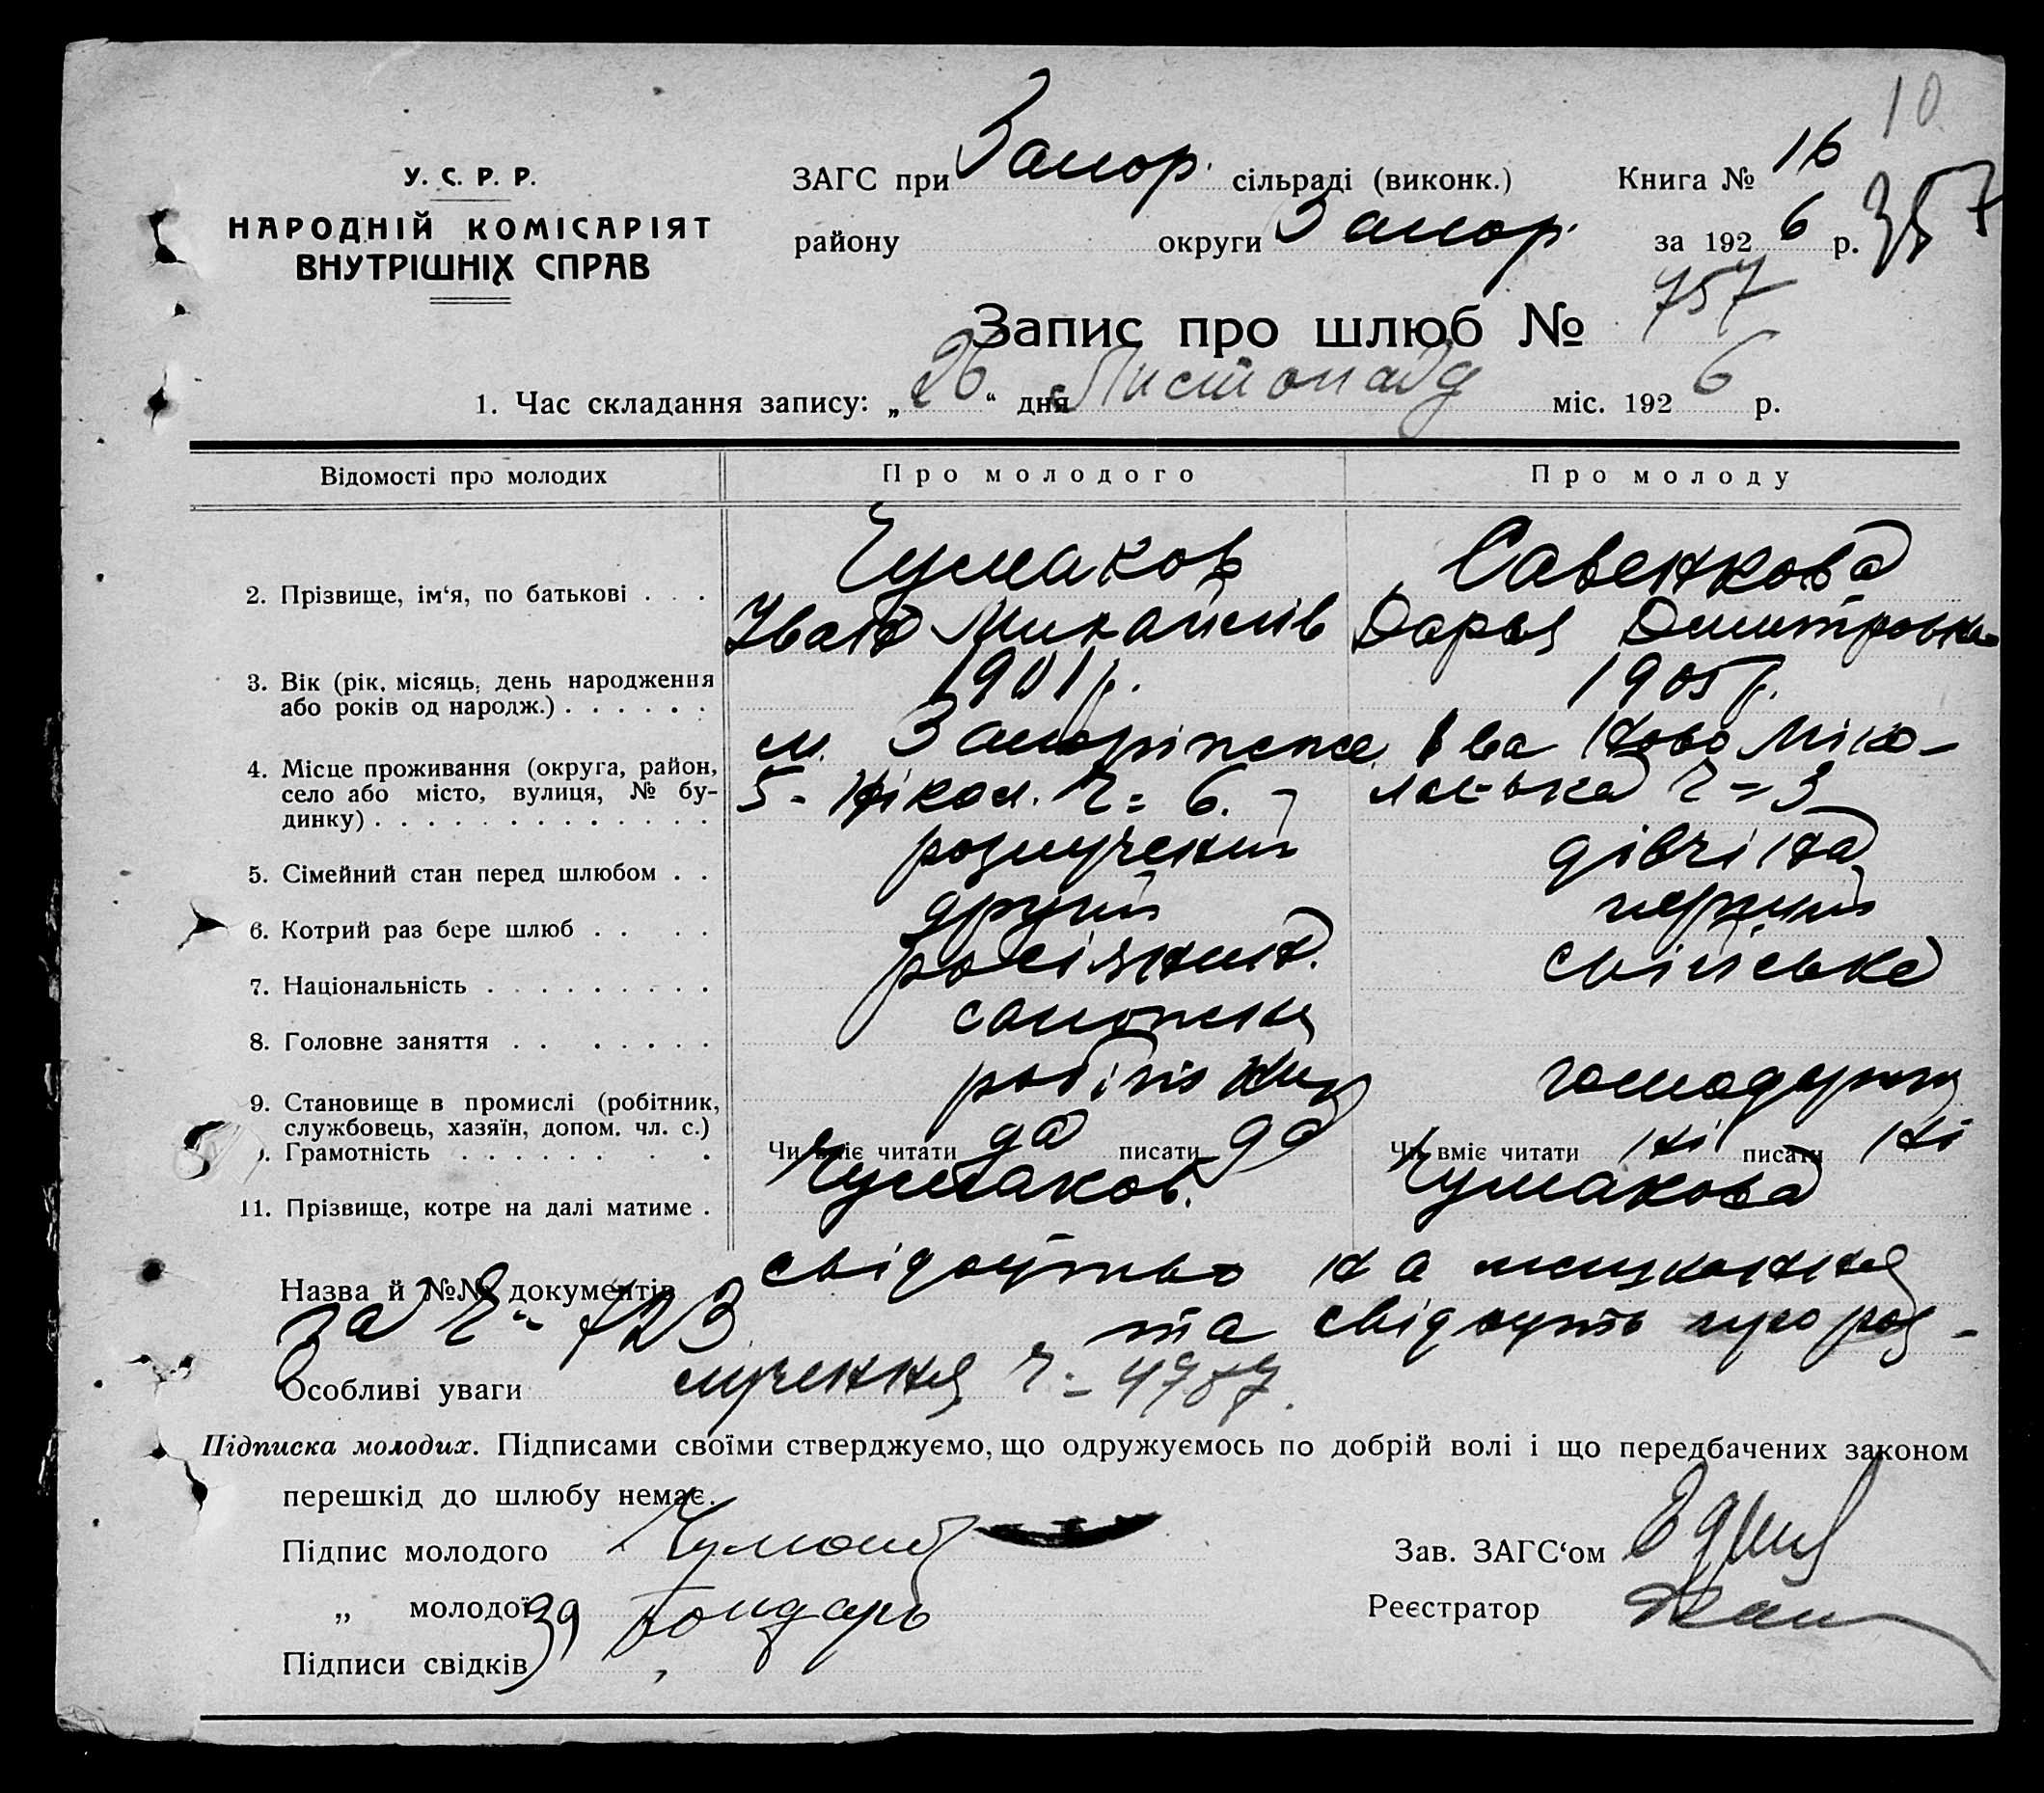 10
У. С. Р. Р.
НАРОДНІЙ КОМІСАРІЯТ
ВНУТРІШНІХ СПРАВ
ЗАГС при Запор. сільраді (виконк.) Книга № 16
району округи Запор. за 1926 р. 357
Запис про шлюб № 757
1. Час складання запису: „26“ дня Листопада міс. 1926 р.
Відомості про молодих Про молодого Про молоду
Чумаков Савенкова
2. Прізвище, ім‘я, по батькові . . .
Іван Михайлів Дарья Дмитровна
3. Вік (рік, місяць, день народження 1901 р. 1905 р.
або років од народж.) . . . . . .
м. Запоріжже
4. Місце проживання (округа, район,
село або місто, вулиця, № бу- 5 - Нікол. Ч = 6. Ч = 3
динку) . . . . . . . . . . . . .
розлучений дівчіна
5. Сімейний стан перед шлюбом . .
другий перший
6. Котрий раз бере шлюб . . . .
росіянин.
7. Національність . . . . . . . . .
8. Головне заняття . . . . . . . .
робітник господарка
9. Становище в промислі (робітник,
службовець, хазяїн, допом. чл. с.)
. Грамотність . . . . . . . . Чи вміє читати да писати да Чи вміє читати ні писати ні
Чумаков. Чумакова
11. Прізвище, котре на далі матиме .
свідоцтво на мешкання
Назва й №№ документів
за Ч = 723 та свідоцтв про роз-
лучення Ч -
Особливі уваги
Підписка молодих. Підписами своїми стверджуємо, що одружуємось по добрій волі і що передбачених законом
перешкід до шлюбу немає.
Підпис молодого Зав. ЗАГС‘ом
„ молодої Бондарь Реєстратор
Підписи свідків